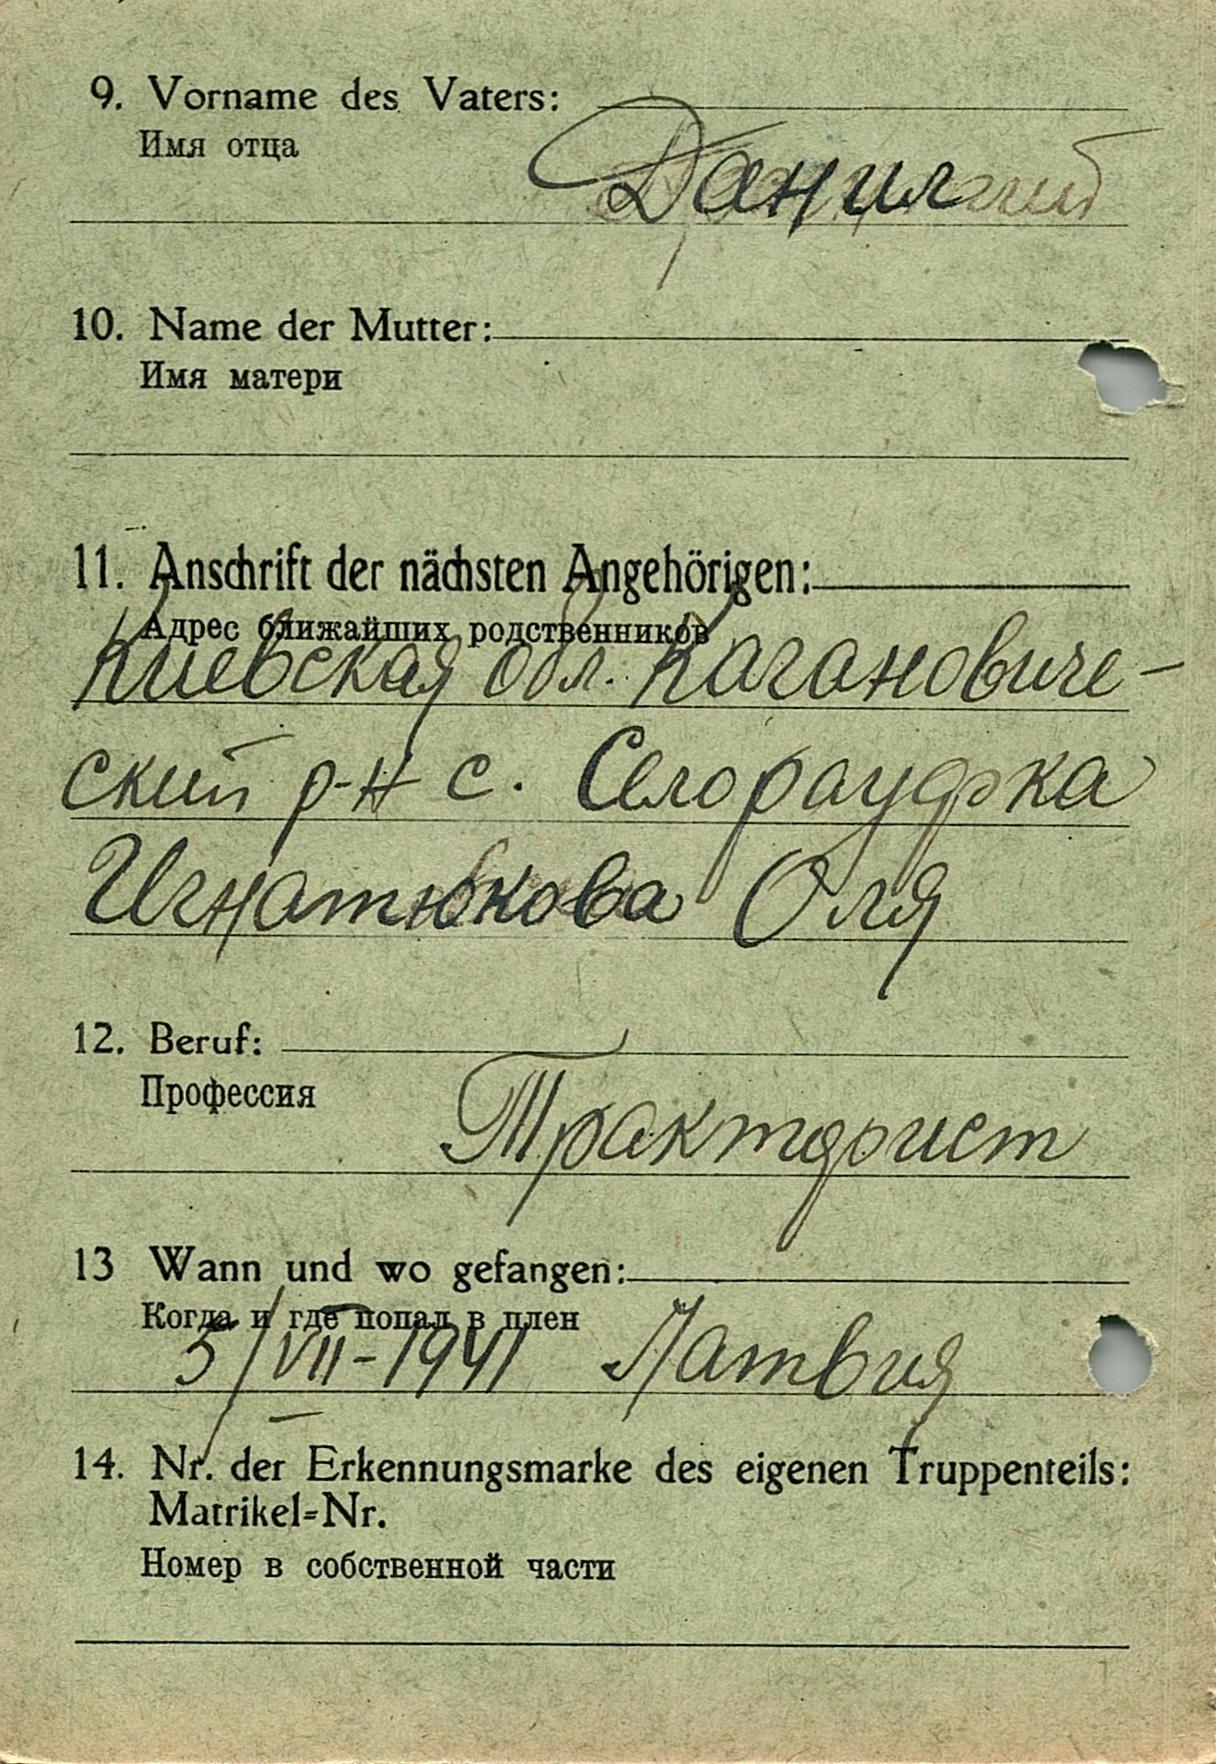 9. Vorname des Vaters:
Имя отца
Данил
10. Name der Mutter:
Имя матери
11. Anschrift der nächsten Angehörigen:
Адрес ближайших родственников
Киевская обл. Кагановиче-
ский р-н с.
Игнатюкова Оля
12. Beruf:
Профессия
Тракторист
13 Wann und wo gefangen:
Когда и где попал в плен
5/VII-1941 Латвия
14. Nr. der Erkennungsmarke des eigenen Truppenteils:
Matrikel=Nr.
Номер в собственной части